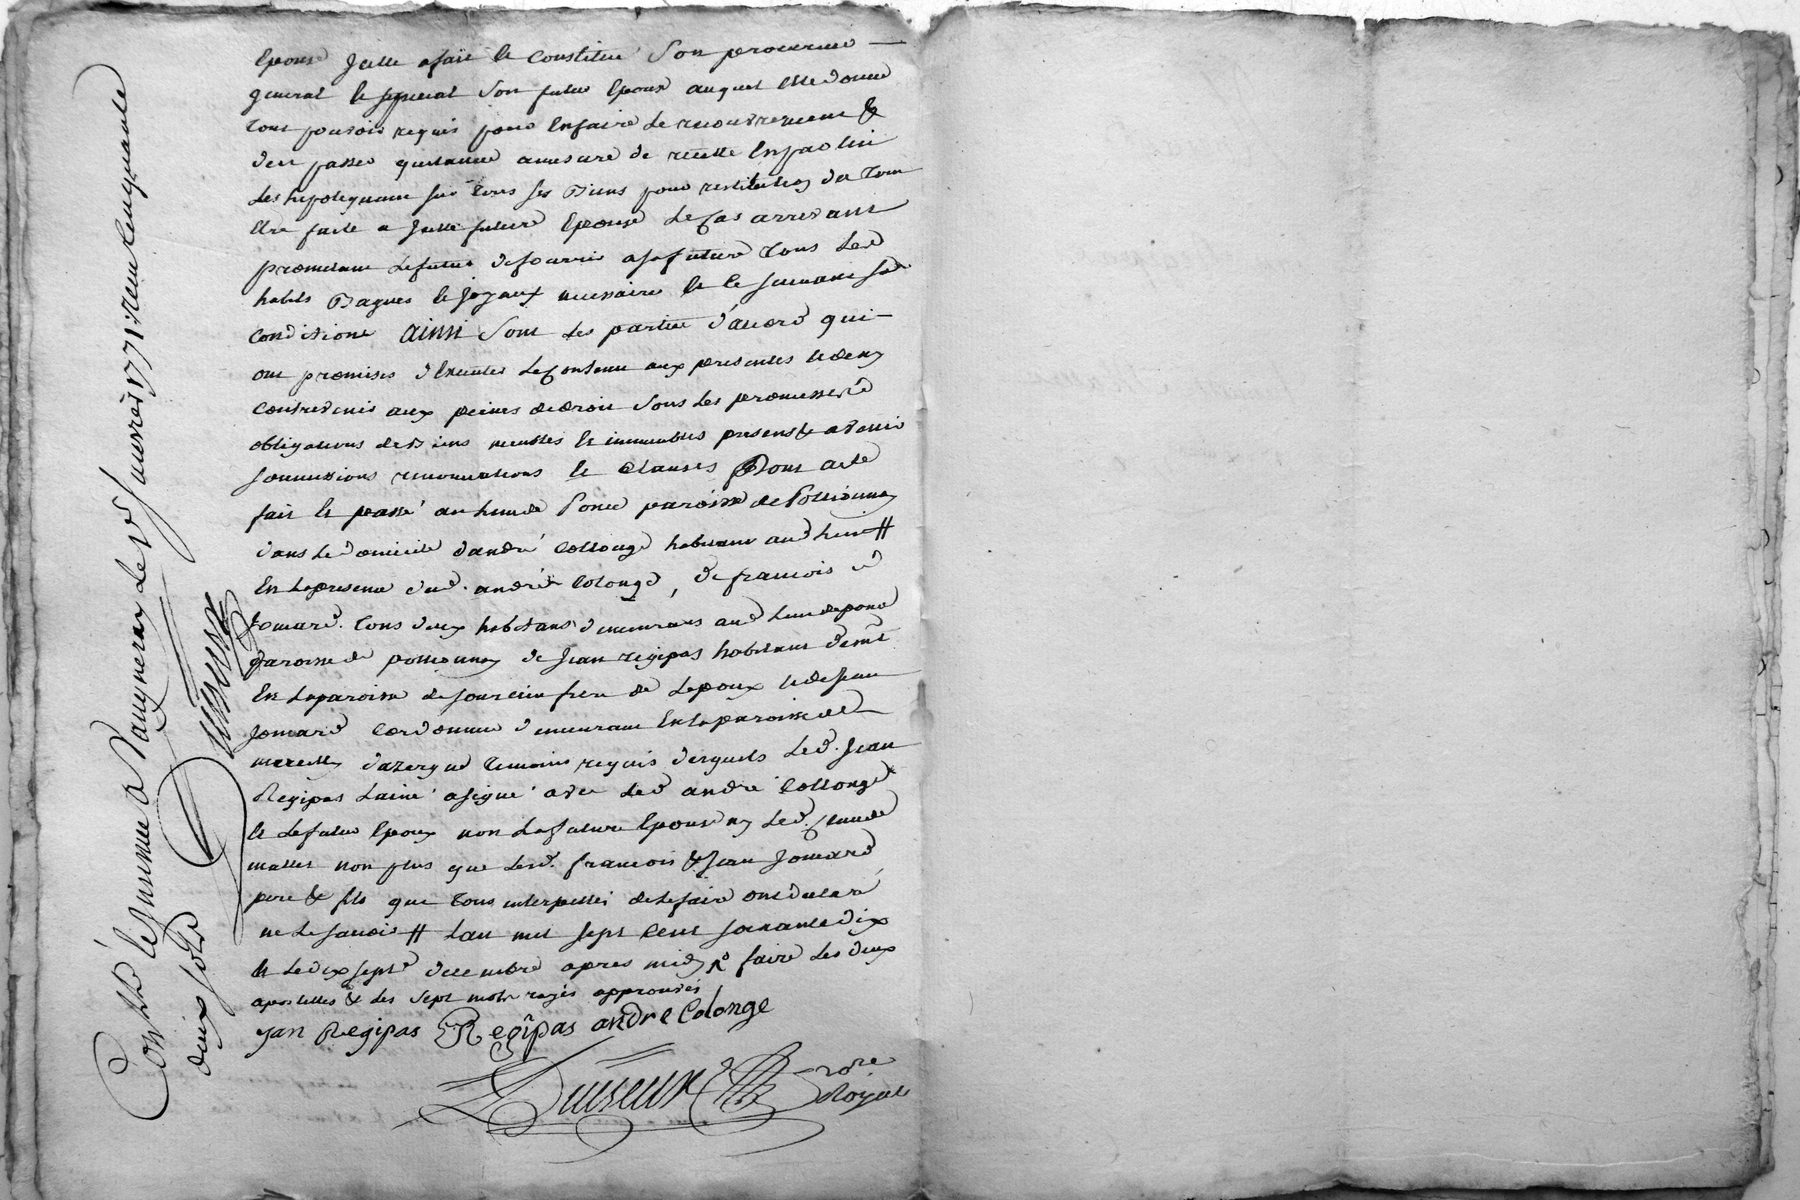 Epouse Jcelle a fait et Constitué Son procureur
general et special Son futur Epoux auquel Elle donne
tout pouvoir requis pour En faire Le recouvrement &
den passer quittance amesure de recette
Les hipotequant sur tous ses Biens pour restitution En
Etre faite a Jcelle future Epouse Le Cas arrivant
promettant Le futur de fournir a sa future tous Les
habits Bagues et Joyaux necessaire et
Condition ainsi Sont Les parties d'accord qui
ont promises d'Executer Le Contenu aux presentes
Contrevenir aux peines de droit Sous Les promesses
obligations de Biens meubles et immeubles presens & avenir
Soumissions renonciations et Clauses Dont acte
fait et passé au lieu de Ponce paroisse de Pollionnay
dans Le domicile d'andré Collonge habitant aud lieu #
En La presence dud. andré Colonge, de francois
Jomard. tous deux habitans demeurans aud lieu de ponce
paroisse de pollionnay de Jean regipas habitant
En La paroisse de Sourcieu frere de Lepoux et de Jean
Jomard Cordonnier demeurant En La paroisse de
marcilly dazergue temoins requis desquels Led. Jean
Regipas Lainé a signé avec Led andré Collonge
et Le futur Epoux non La future Epouse ny Led. Claude
mallet non plus que Lesd. francois & Jean Jomard
pere & fils que tous interpellés de Le faire ont declaré
ne Le savoir # Lan mil sept Cent soixante dix
et Le dix sept decembre apres midy faire Les deux
apostilles & Les Sept mots rayés approuvés
Jan Regipas Regipas andre Colonge
Dusseux Nore
Royal
Conllé et Jnsinué a Vaugneray Le Janvier 1771: reçu Cinquante
deux sols
Dusseux